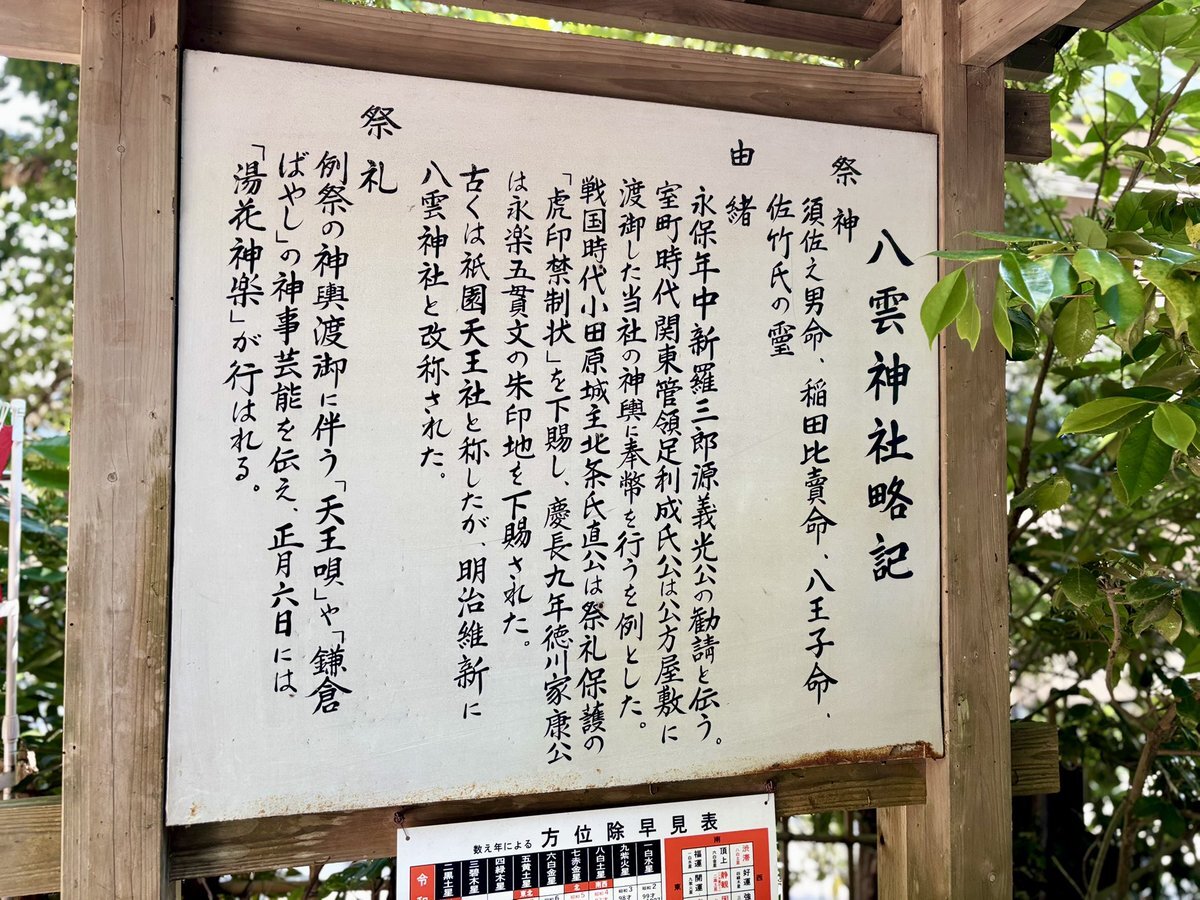 八雲神社略記
祭神
須佐之男命、稲田比賣命、八王子命、
佐竹氏の霊
由緒
永保年中新羅三郎源義光公の勧請と伝う。
室町時代関東管領足利成氏公は公方屋敷に
渡御した当社の神輿に奉幣を行うを例とした。
戦国時代小田原城主北条氏直公は祭礼保護の
「虎印禁制状」を下賜し、慶長九年徳川家康公
は永楽五貫文の朱印地を下賜された。
古くは祇園天王社と称したが、明治維新に
八雲神社と改称された。
祭礼
例祭の神輿渡御に伴う「天王唄」や「鎌倉
ばやし」の神事芸能を伝え、正月六日には
「湯花神楽」が行はれる。
数え年による 方位除早見表
一白水星
九紫火星
八白土星
七赤金星
六白金星
五黄土星
四緑木星
三碧木星
二黒土星
南
東
西